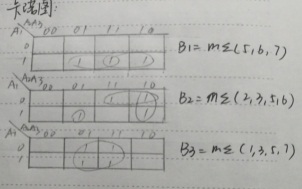 卡诺图:
A₁ A₂A₃ 00 01 11 10
0
1 1 1 1
B₁ = m∑(5,6,7)
A₁ A₂A₃ 00 01 11 10
0 1 1
1 1 1
B₂ = m∑(2,3,5,6)
A₁ A₂A₃ 00 01 11 10
0 1 1
1 1 1
B₃ = m∑(1,3,5,7)